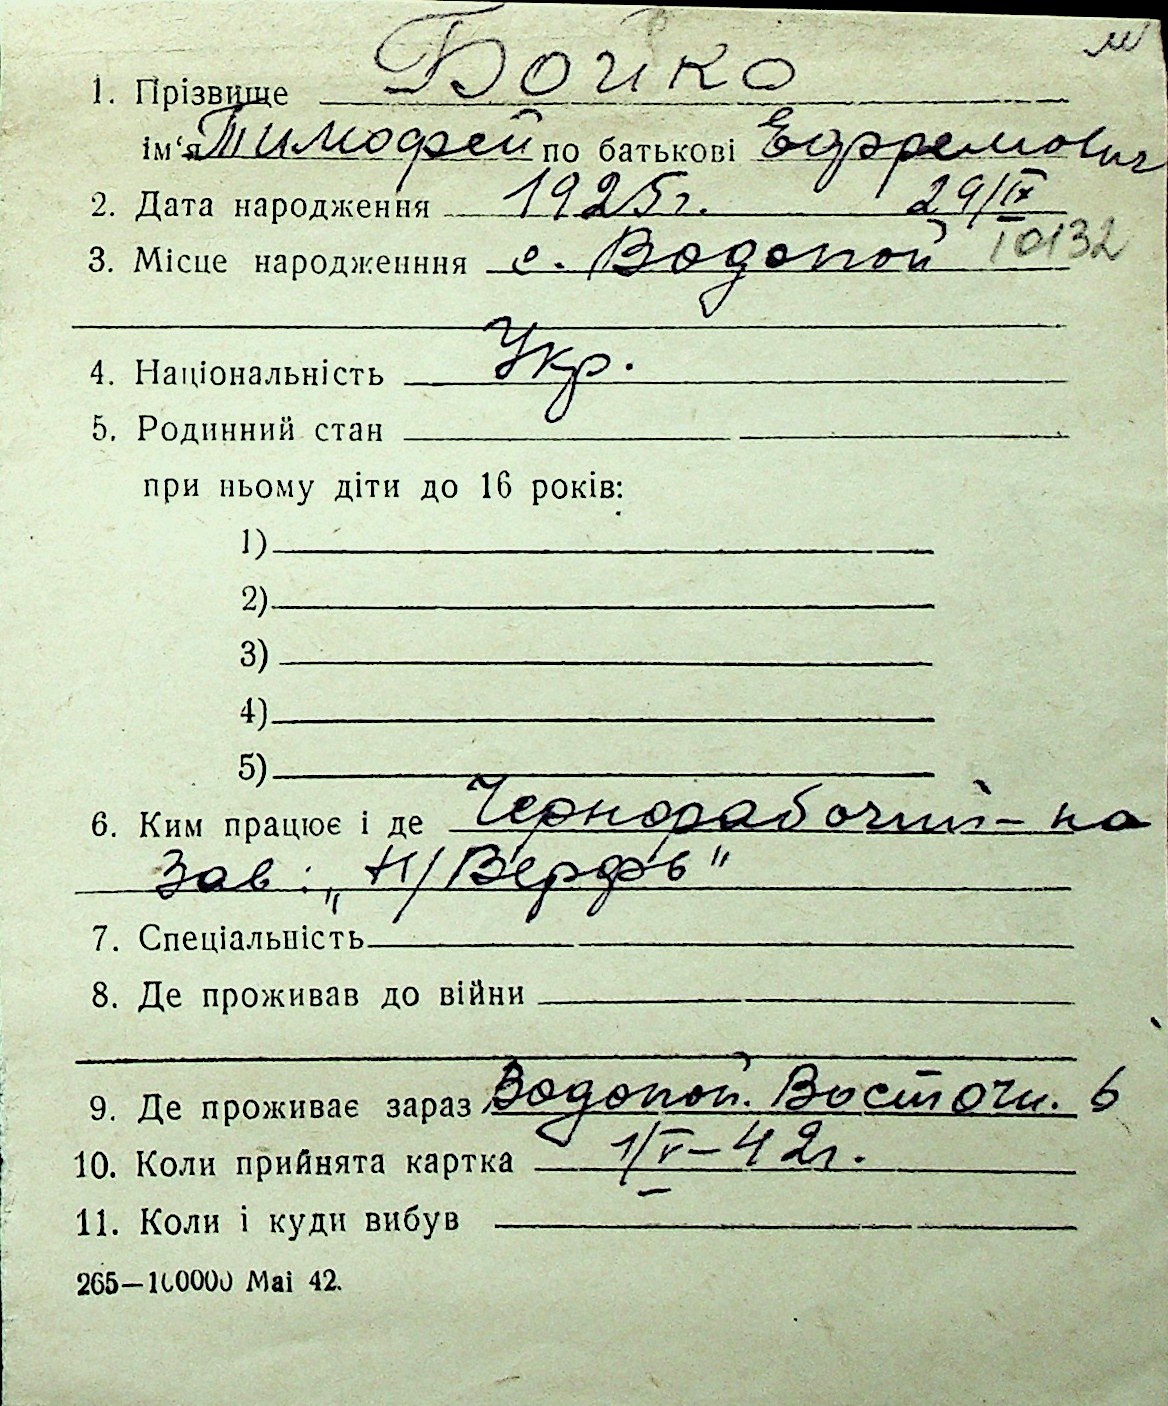 1. Прізвище Бойко
ім'я Тимофей по батькові Ефремович
2. Дата народження 1925г. 29/IX
3. Місце народженння с. Водопой 10132
4. Національність Укр.
5. Родинний стан
при ньому діти до 16 років:
1)
2)
3)
4)
5)
6. Ким працює і де Чернорабочий - на
Зав: „Н/Верфь"
7. Спеціальність
8. Де проживав до війни
9. Де проживає зараз Водопой. Восточн. 6
10. Коли прийнята картка 1/V - 42г.
11. Коли і куди вибув
265—100000 Mai 42.